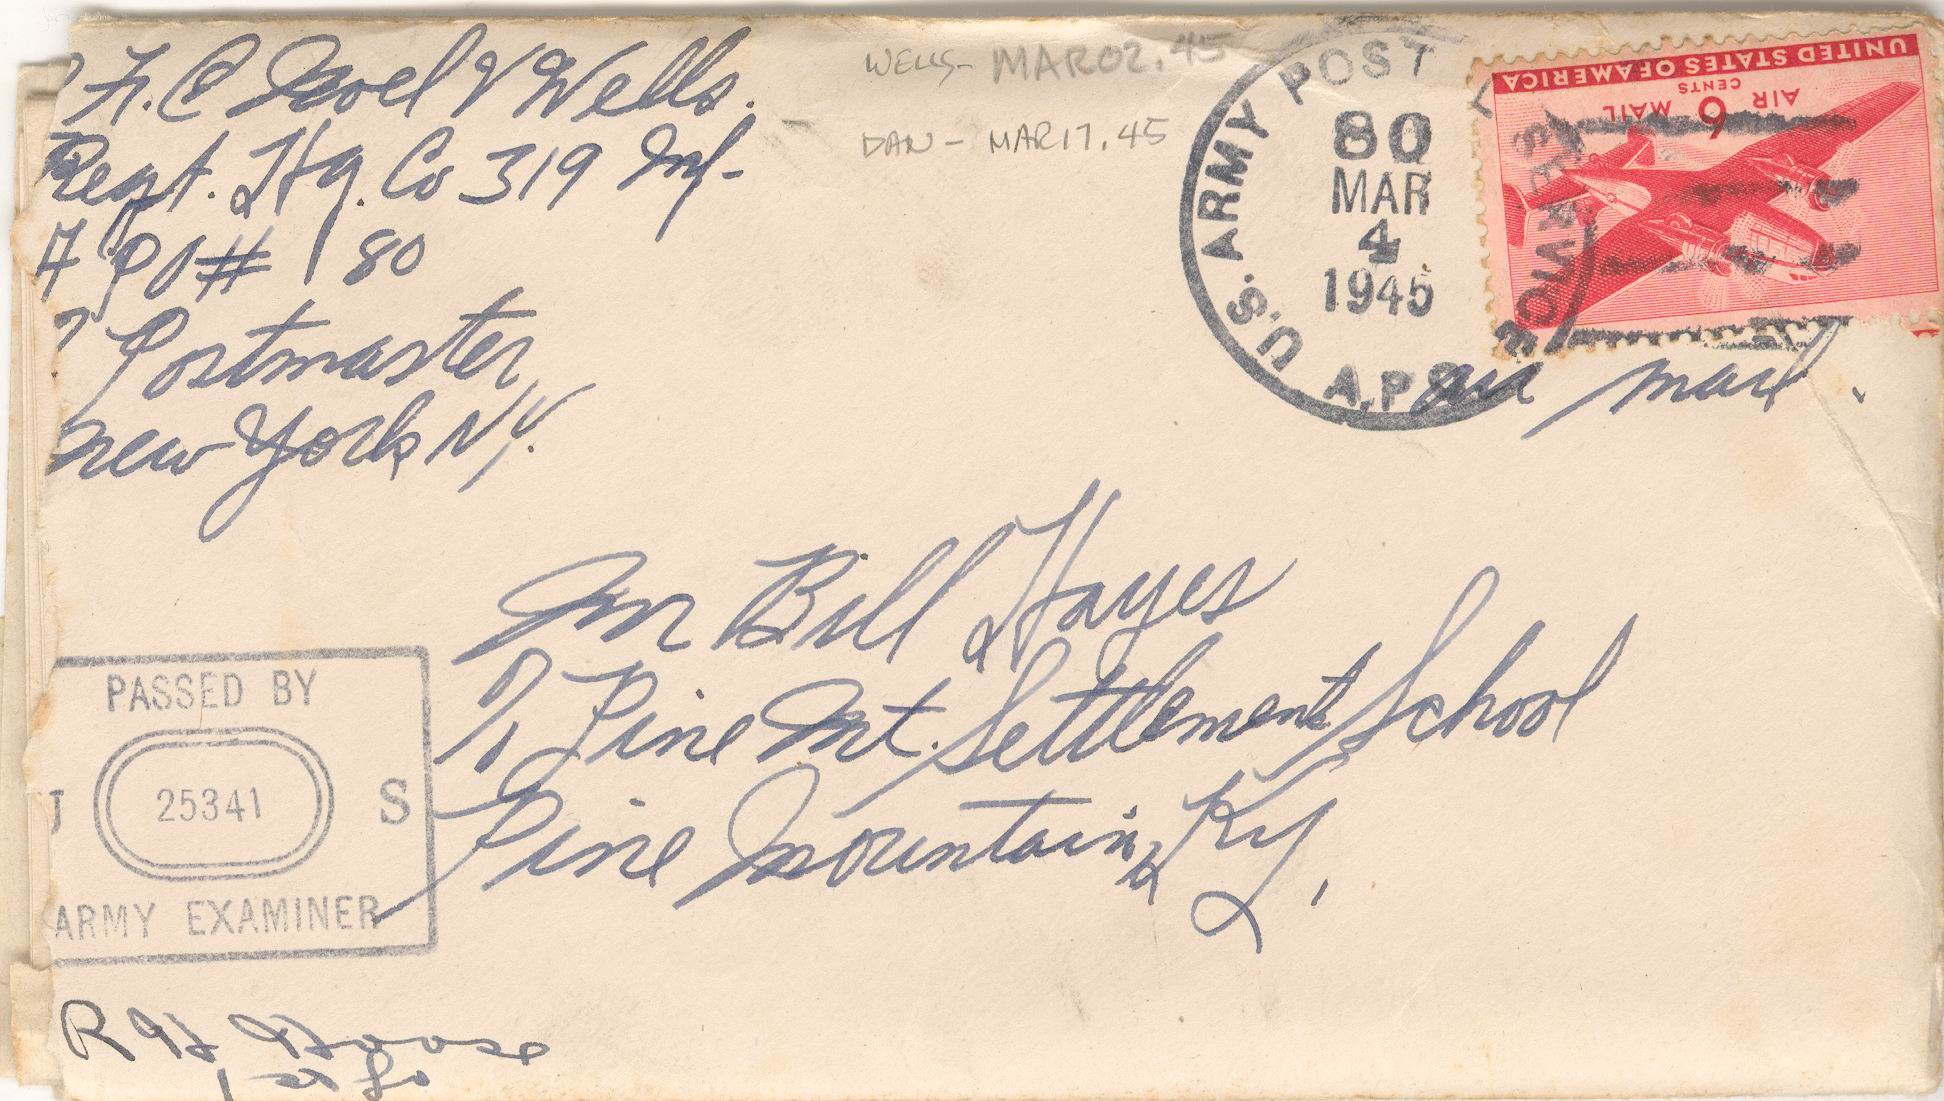 F.C Noel V Wells.
Regt. Hq. Co 319 Inf-
A PO# 80
% Postmaster
New York N.Y.
WELLS - MAR 02. 45
DAN - MAR 17. 45
U.S. ARMY POST
80
MAR
4
1945
A.P.
UNITED STATES OF AMERICA
AIR 6 MAIL
CENTS
air mail
Mr Bill Hayes
% Pine Mt. Settlement School
Pine Mountain, Ky.
PASSED BY
25341 S
ARMY EXAMINER
R H
1st Lt